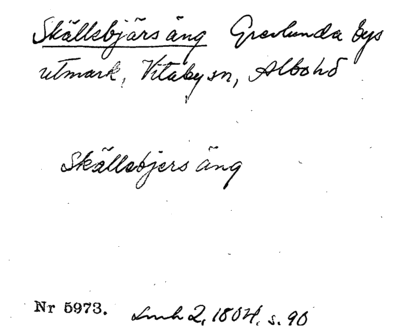 Skällsbjärs äng Gravlunda bys
utmark, Vitaby sn, Albo hd
Skällsbjers äng
Nr 5973. Lmh 2, 1804, s. 90